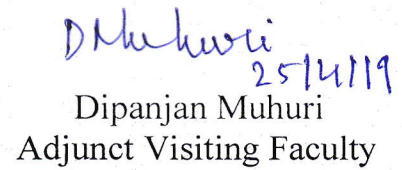 DMuhuri
25/4/19
Dipanjan Muhuri
Adjunct Visiting Faculty